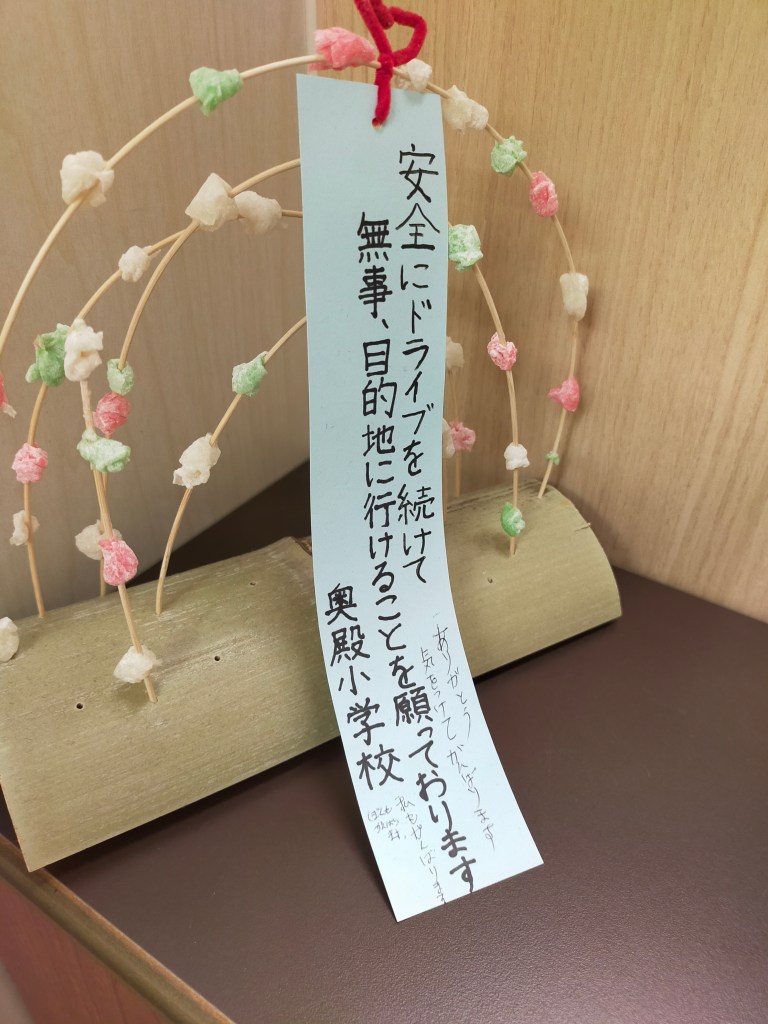 安全にドライブを続けて
無事、目的地に行けることを願っております
奥殿小学校
ありがとう がんばります
気をつけて
私もがんばります